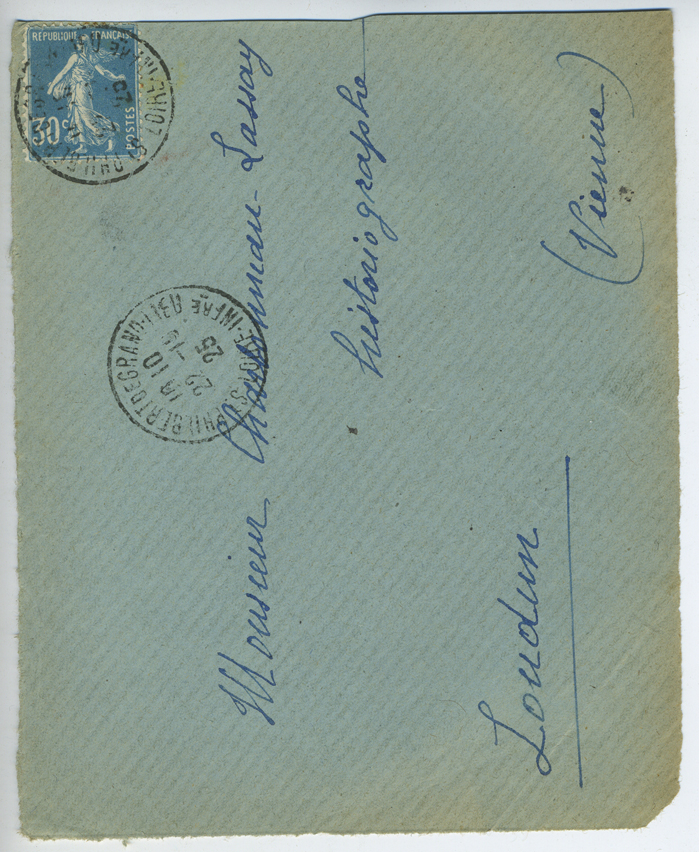 RÉPUBLIQUE FRANÇAISE
30c
POSTES
LOIRE-INFRE
ST PHILBERT DE GRAND-LIEU
LOIRE-INFRE
18 10
23 -10
25
Monsieur Charbonneau-Lassay
historiographe
Loudun
(Vienne)